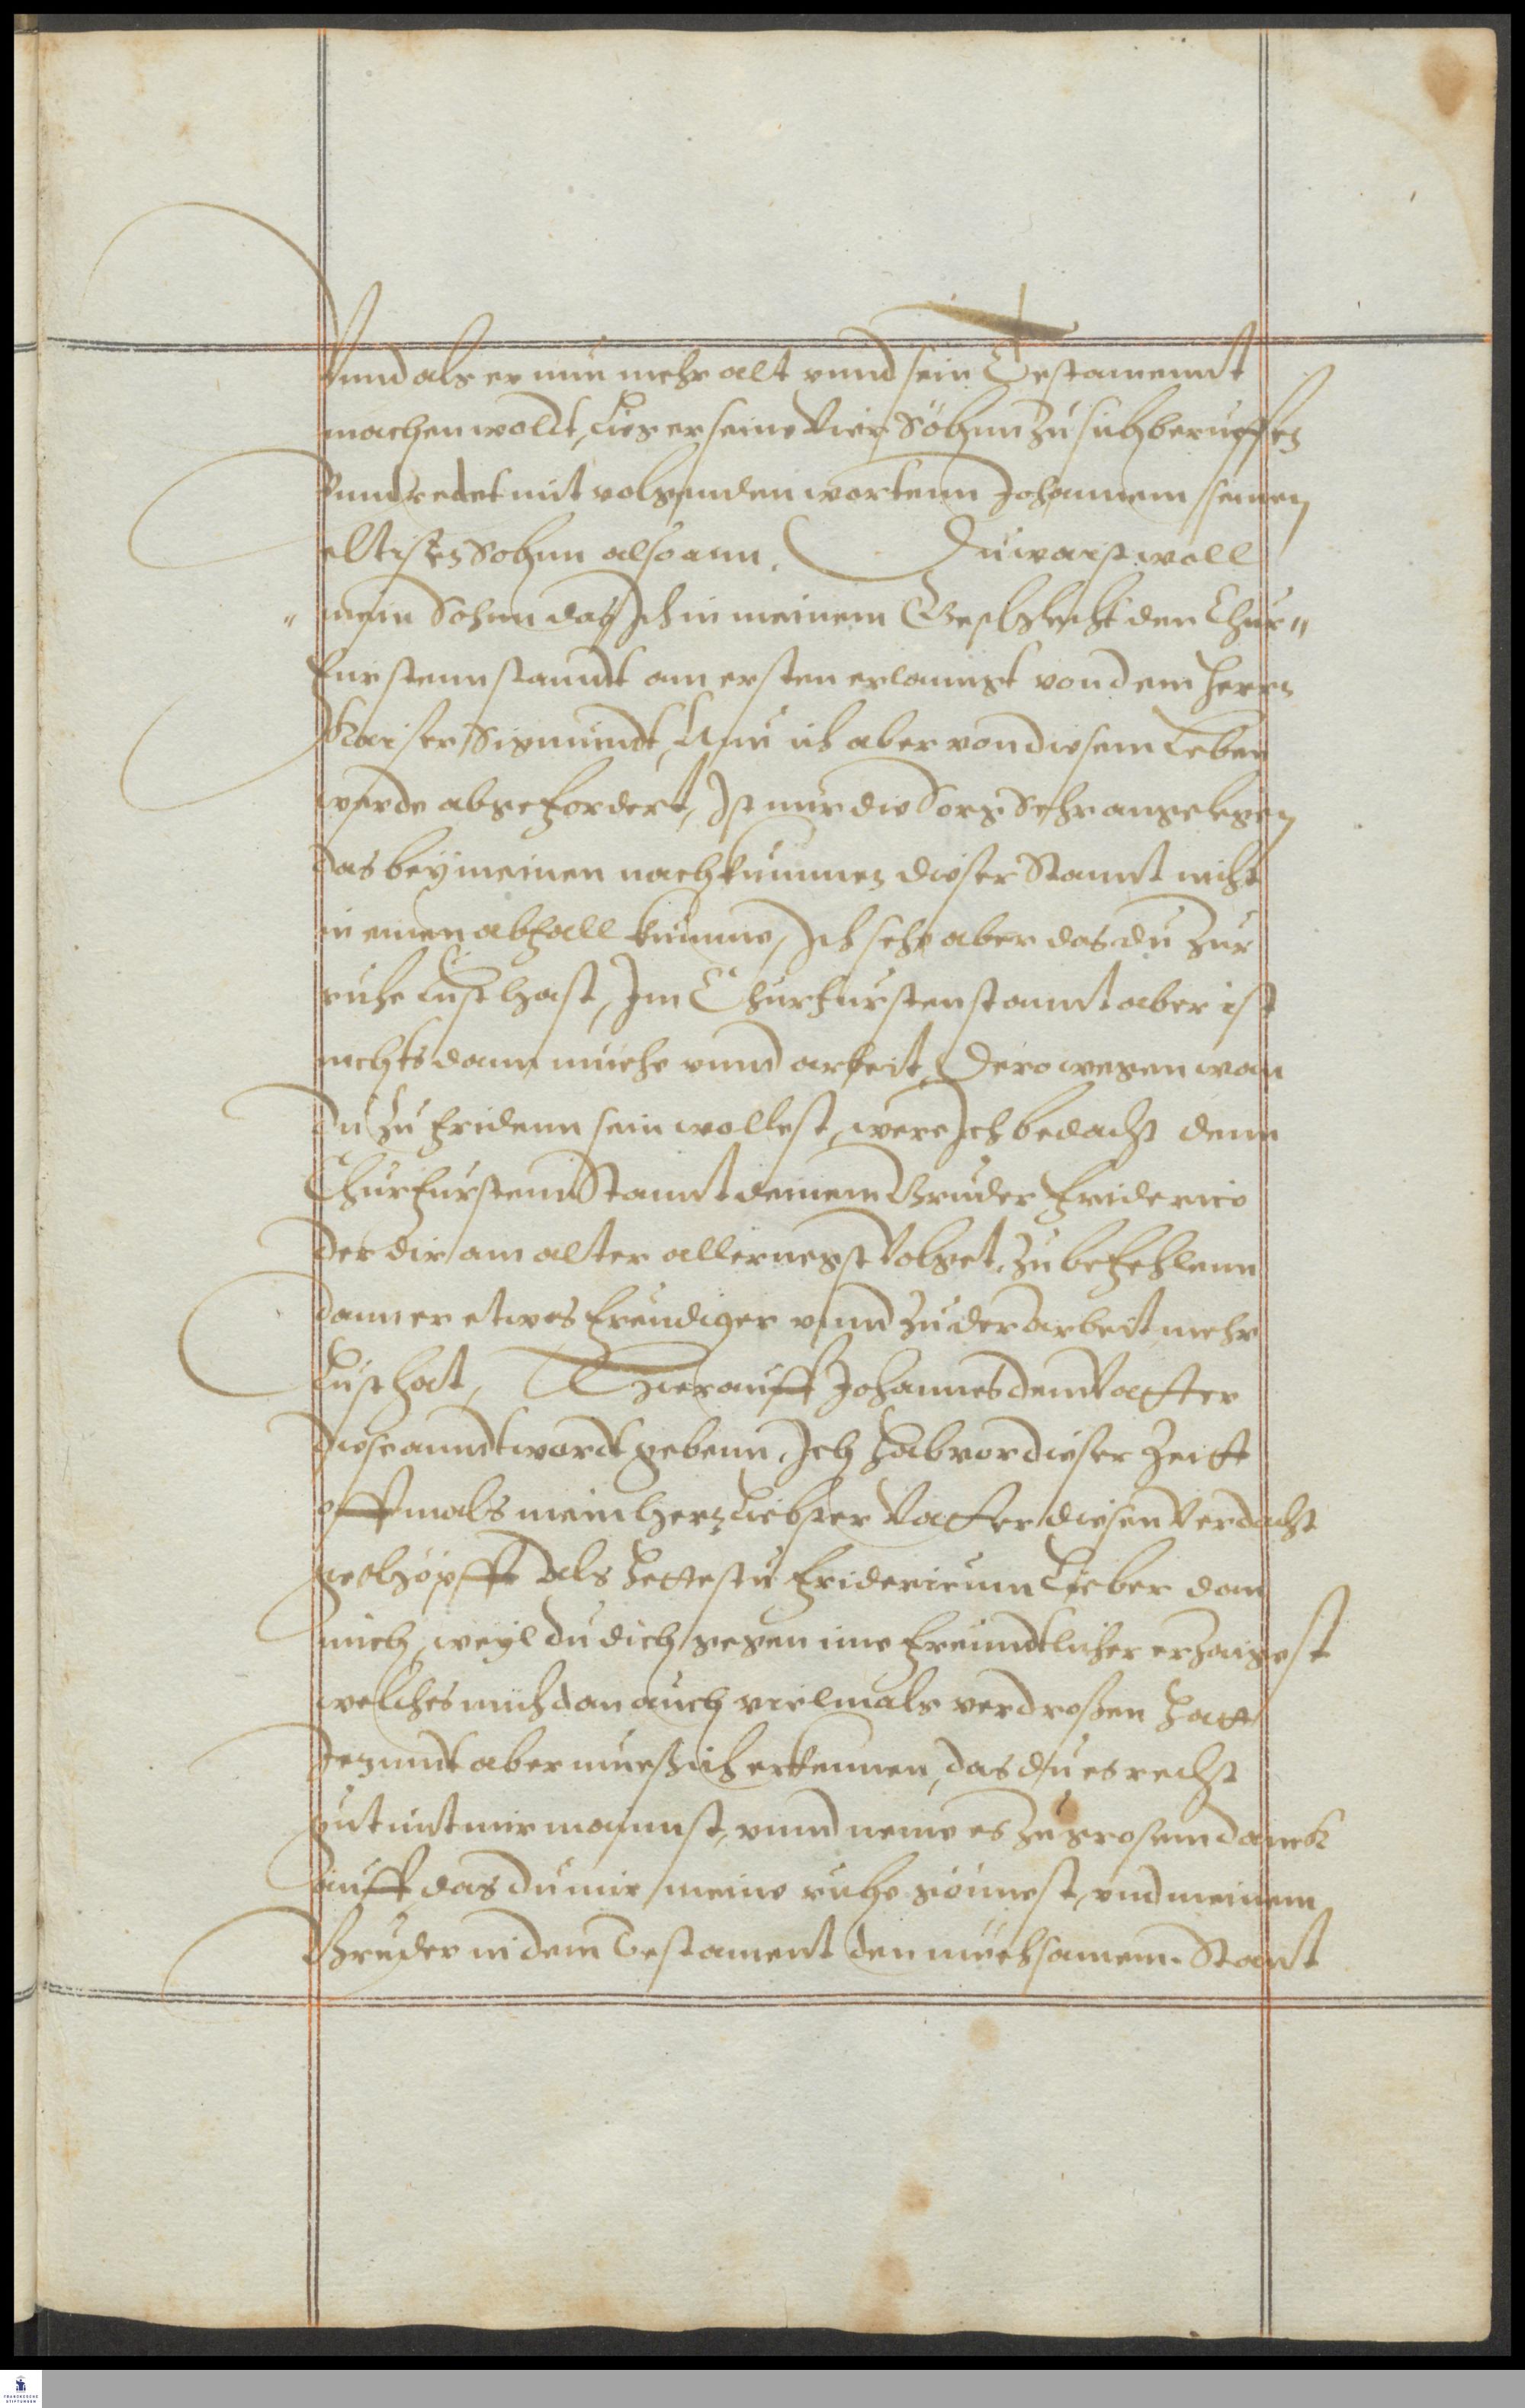 Vnnd als er nun mehr alt vnnd sein Testamenntt
machen woldt, Lies er seine Vier Söhnn zu sich beruffen
Vnnd redet mit volgenden wortenn Johannem seinen
eltisten Sohnn also ann. Du waist woll
mein Sohnn das Ich in meinem Geschlecht den Chur„
furstennstanndt am ersten erlanngt von dem herrn
Kaiser Sigmundt, Nun ich aber von diesem Leben
werde abgefordert, Ist mir die Sorg Sehr angelegen
das bey meinen nachkummen dieser Stannt nicht
in einen abfall kumme, Ich sehe aber das du zur
ruhe Lust hast, Im Churfurstenstannt aber ist
nichts dann muehe vnnd arbeit, Derowegen wan
du zu fridenn sein wollest, were Ich bedacht denn
Churfurstenn Stannt deinem Bruder Friderico
der dir am alter allernegst Volget, zu befehlenn
dann er etwas freudiger vnnd zu der arbeit mehr
Lust hat, Hierauff Johannes dem Vatter
diese anndtwordt gebenn, Ich hab vor dieser Zeitt
offtmals mein herz Liebster Vatter diesen Verdacht
geschöpfft Als hettestu Fridericum Lieber dan
mich, weyl du dich gegen ime freundtlicher erzaigest
welches mich dan auch vielmals verdrossen hatt
Jezundt aber muess ich erkennen, das du es recht
gut mit mir mainnst, vnnd neme es zu grossem danck
auff das du mir meine ruhe günnest, vnd meinem
Bruder in dem Testament den müehsamenn Stant
FRANCKESCHE
STIFTUNGEN